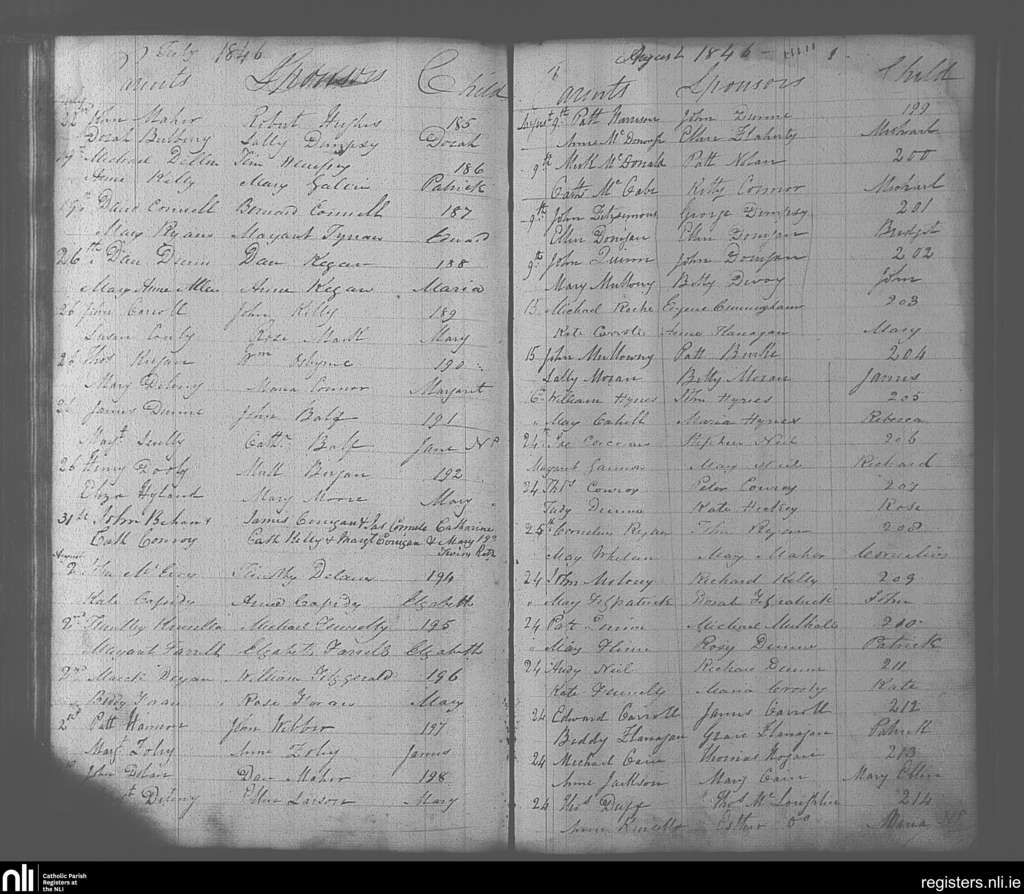 July 1846
Parents Sponsors Child
22nd John Maher Robert Hughes 185
Dorah Sally Dempsey Dorah
19th Michael Jem Dempsey 186
Anne Kelly Mary Patrick
19th Connell Bernard Connell 187
Mary Ryan Margaret Tynan Edward
26th Dan Dunn Dan Regan 188
Mary Anne Allen Anne Regan Maria
26 Jem Carroll John Kelly 189
Susan Conly Rose Mary
26 Thos Regan Wm Obyrne 190
Mary Delany Maria Connor Margaret
26 James Dunne John Balf 191
Margt Scully Cathn Balf Jane
26 Henry Dooly Matt Bergan 192
Eliza Hyland Mary Moore Mary
31st John Behan James Corrigan & Jas Catharine
Cath Conroy Cath Kelly & Margt Corrigan & Mary 193
August Twins
2 McEvoy Timothy Delany 194
Kate Casidy Anne Casidy Elizabeth
2nd Timothy Michael 195
Margaret Farrell Elizabeth Farrell Elizabeth
2nd William Fitzgerald 196
Biddy Rose Mary
2nd Patt John Webber 197
Mary Foley Anne Foley James
John Dan Maher 198
Delany Ellen Larson Mary
August 1846
Parents Sponsors Child
August 9th Patt Harrison John Dunne 199
Anne McDonogh Ellen Flaherty Michael
9th McDonald Patt Nolan 200
Cath McCabe Kitty Connor Michael
9th John Fitzsymons George Dempsy 201
Ellen Donigan Ellen Donigan Bridget
9th John Quinn John Donigan 202
Mary Mullony Betty Devoy John
15 Michael Roche Eugene Cunningham 203
Kate Anne Flanagan Mary
15 John Mullowny Patt Burke 204
Sally Moran Betty Moran James
William Hynes John Hynes 205
May Cahill Maria Hynes Rebecca
24th Corcoran Stephen Neil 206
Margaret Gannon Mary Neil Richard
24 Thos Conroy Peter Conroy 207
Judy Dunne Kate Hickey Rose
25th Cornelius Regan Thos Ryan 208
May Whelan May Maher Cornelius
24 John Molony Richard Kelly 209
May Fitzpatrick John
24 Patt Michael Mulhall 210
May Rosy Dunne Patrick
24 Andy Neil Richard Dunne 211
Kate Fennelly Maria Kate
24 Edward Carroll James Carroll 212
Biddy Flanagan Grace Flanagan Patrick
24 Michael Cain Thomas Hogan 213
Anne Jackson Mary Cain Mary Ellen
24 Thos Duff Thos McLoughlin 214
Anne Kinsella Esther Do Maria
nli
Catholic Parish
Registers at
the NLI
registers.nli.ie